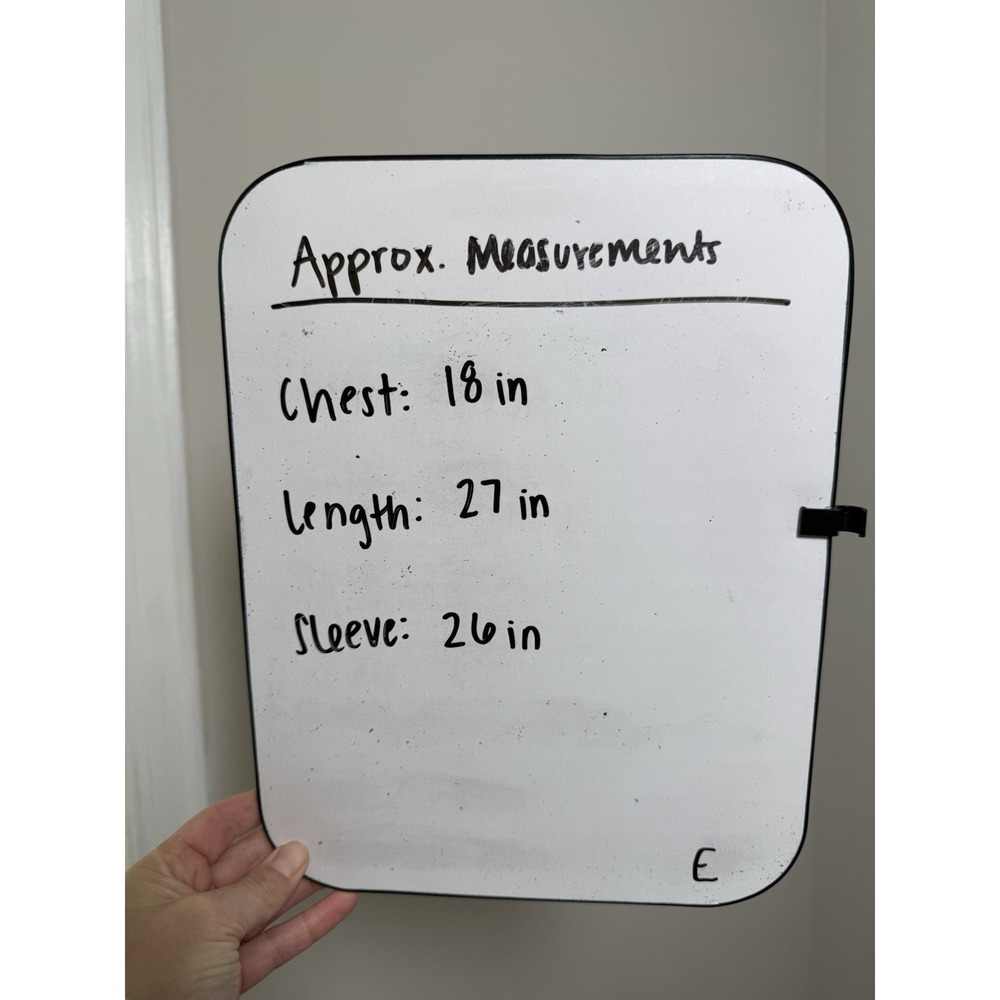 Approx. Measurements
Chest: 18 in
Length: 27 in
Sleeve: 26 in
E